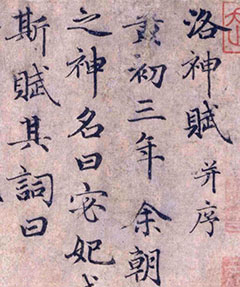 洛神賦 并序
黃初三年余朝
之神名曰宓妃
斯賦其詞曰